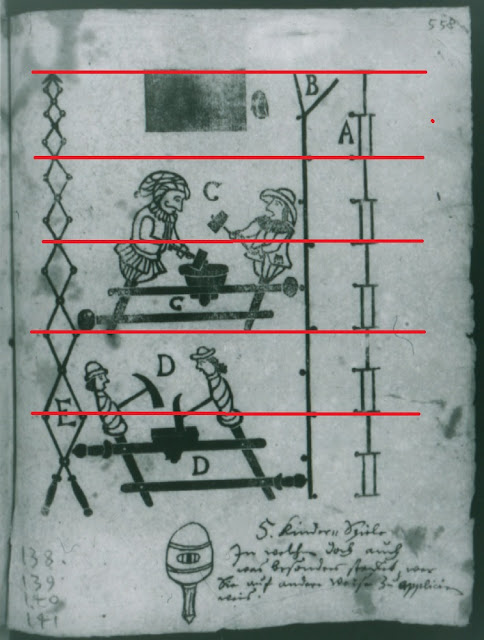 558
B
A
C
C
D
E
D
5. Kinder = Spiele
In welchen doch auch
was besonders steckt, wer
Sie auf andere Weise zu appliciren
weis.
138.
139
140
141